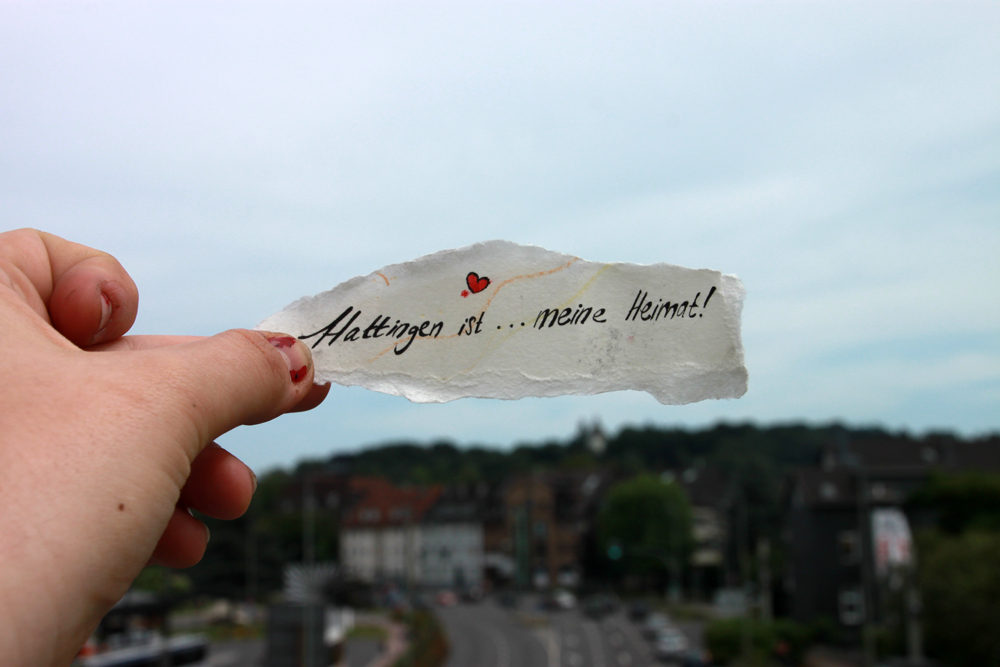 Hattingen ist ... meine Heimat!